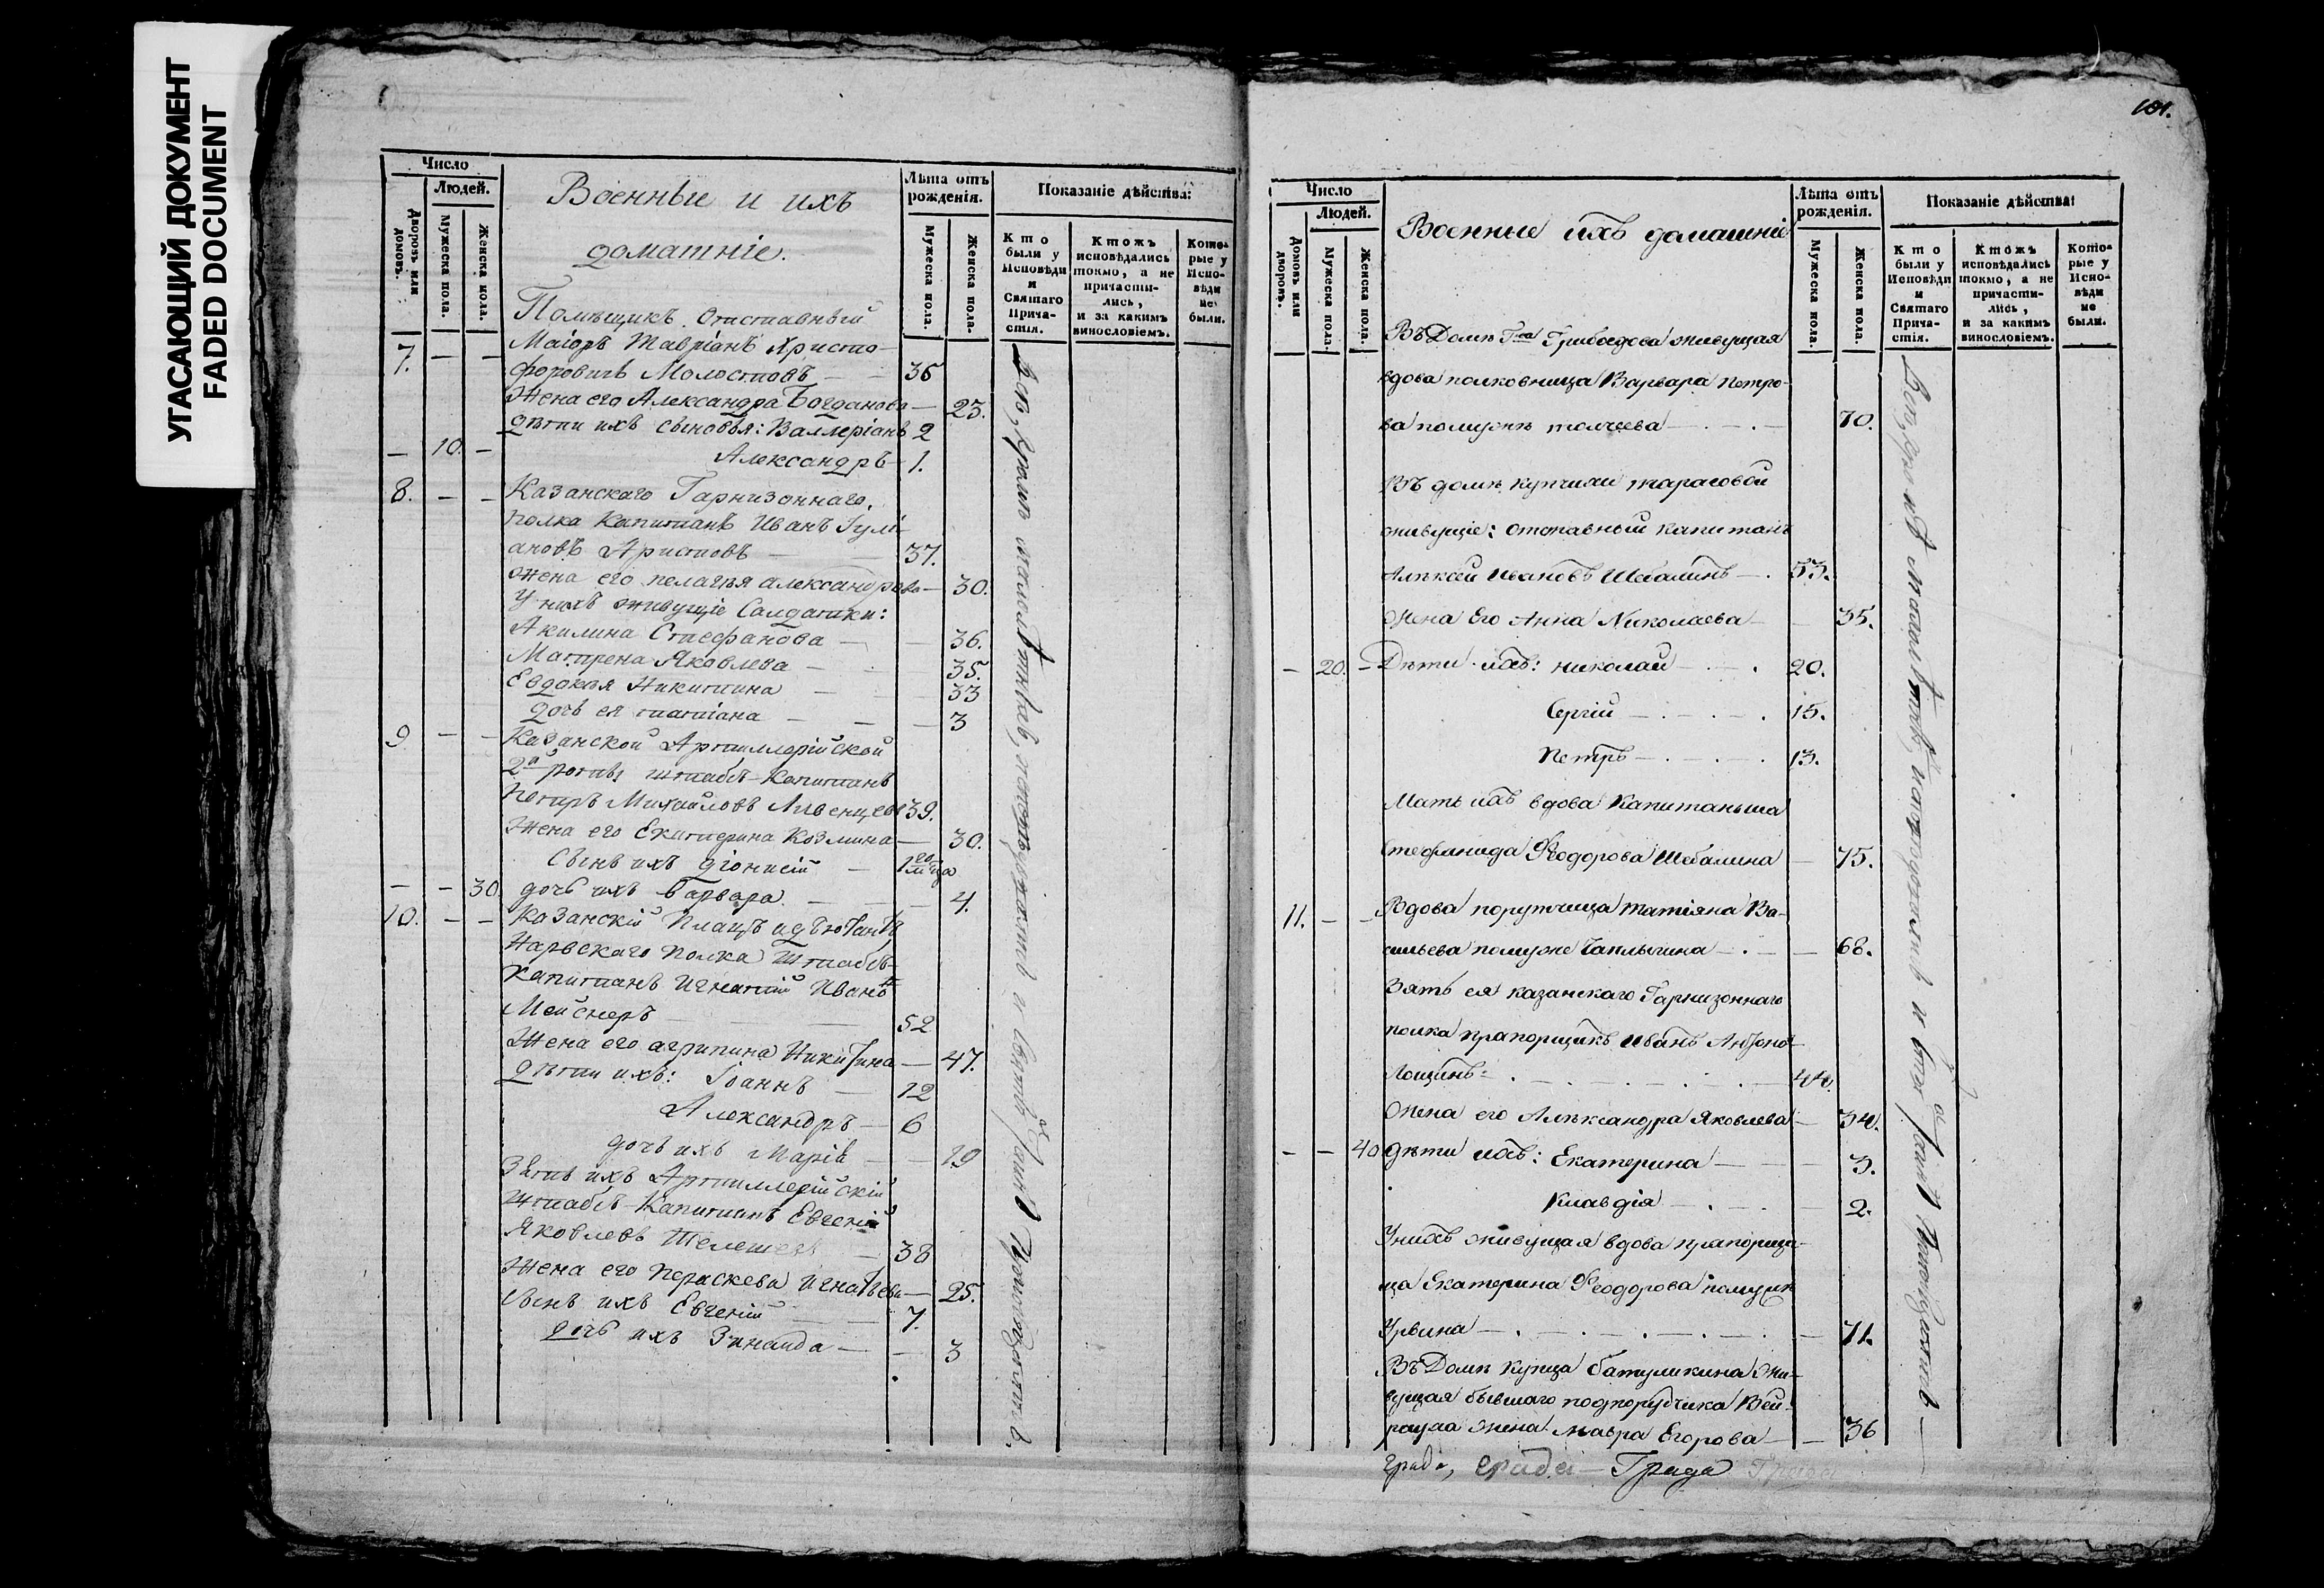 УГАСАЮЩИЙ ДОКУМЕНТ
FADED DOCUMENT
Число
Людей.
Дворовъ или домовъ.
Мужеска пола.
Женска пола.
Военные и ихъ
домашніе.
Лѣта отъ рожденія.
Мужеска пола.
Женска пола.
Показаніе дѣйства:
Кто были у Исповѣди и Святаго Прича- стія.
Ктожъ исповѣдались токмо, а не причасти- лись, и за какимъ винословіемъ.
Кото- рые у Испо- вѣди не были.
Помѣщикъ Отставный
7. — — Маіоръ Тавріанъ Христо-
форовичь Молостовъ — 35
Жена его Александра Богданова — 23.
дѣти ихъ сыновья: Валлеріанъ 2
— 10. — Александръ — 1.
8. — — Казанскаго Гарнизоннаго
полка Капитанъ Иванъ Гулі-
ановъ Аристовъ — 37.
Жена его пелагѣя александрова — 30.
У нихъ живущіе Салдатки:
Акилина Стефанова — 36.
Матрена Яковлева — 35.
Евдокѣя Никитина — 33
дочь ея татіана — 3
9 — — Казанской Артиллерійской
2й роты штабсъ-Капитанъ
Петръ Михайловъ Ливенцовъ 39.
Жена его Екатерина Козмина — 30.
Сынъ ихъ діонисій —
— — 30 дочь ихъ варвара — 4.
10. — — Казанскій Плацъ адъютантъ
Нарвскаго полка Штабсъ-
Капитанъ Игнатій Иванъ
Мейснеръ — 52
Жена его агрипина Никитина — 47.
дѣти ихъ: Іоаннъ — 12
Александръ — 6
дочь ихъ Марія — 19
Зять ихъ Артиллерійскій
Штабсъ-Капитанъ Евгеній
Яковлевъ — 38
Жена его пераскева Игнатьева — 25.
Сынъ ихъ Евгеній — 7.
дочь ихъ Зинаида — 3
101.
Число
Людей.
Домовъ или дворовъ.
Мужеска пола.
Женска пола.
Военные ихъ домашніе
Лѣта отъ рожденія.
Мужеска пола.
Женска пола.
Показаніе дѣйства:
Кто были у Исповѣди и Святаго Прича- стія.
Ктожъ исповѣдались токмо, а не причасти- лись, и за какимъ винословіемъ.
Кото- рые у Испо- вѣди не были.
Въ Домѣ Г-на Грибоедова живущая
вдова полковница Варвара петро-
ва помужѣ толчеева — 70.
Въ домѣ купчихи тарасовой
живущіе: отставный капитанъ
Алѣксѣй Ивановъ Шебалинъ — 53.
Жена Его Анна Николаева — 35.
— 20. — Дѣти ихъ: николай — 20.
Сергій — 15.
Петръ — 13.
Мать ихъ вдова Капитанша
Стефанида Ѳеодорова Шебалина — 75.
11. — — Вдова порутчица татіяна Ва-
сильева помужѣ Чаплыгина — 68.
Зять ея казанскаго Гарнизоннаго
полка прапорщикъ Иванъ Антоно
Лощинъ — 44.
Жена его Алѣксандра Яковлева — 34.
— — 40 дѣти ихъ: Екатерина — 3.
Клавдія — 2.
У нихъ живущая вдова прапорщи-
ца Екатерина Ѳеодорова помужѣ
Урвина — 71.
Въ Домѣ купца батуликина жи-
вущая бывшаго подпорутчика Вей-
рауха жена мавра Егорова — 36
Града